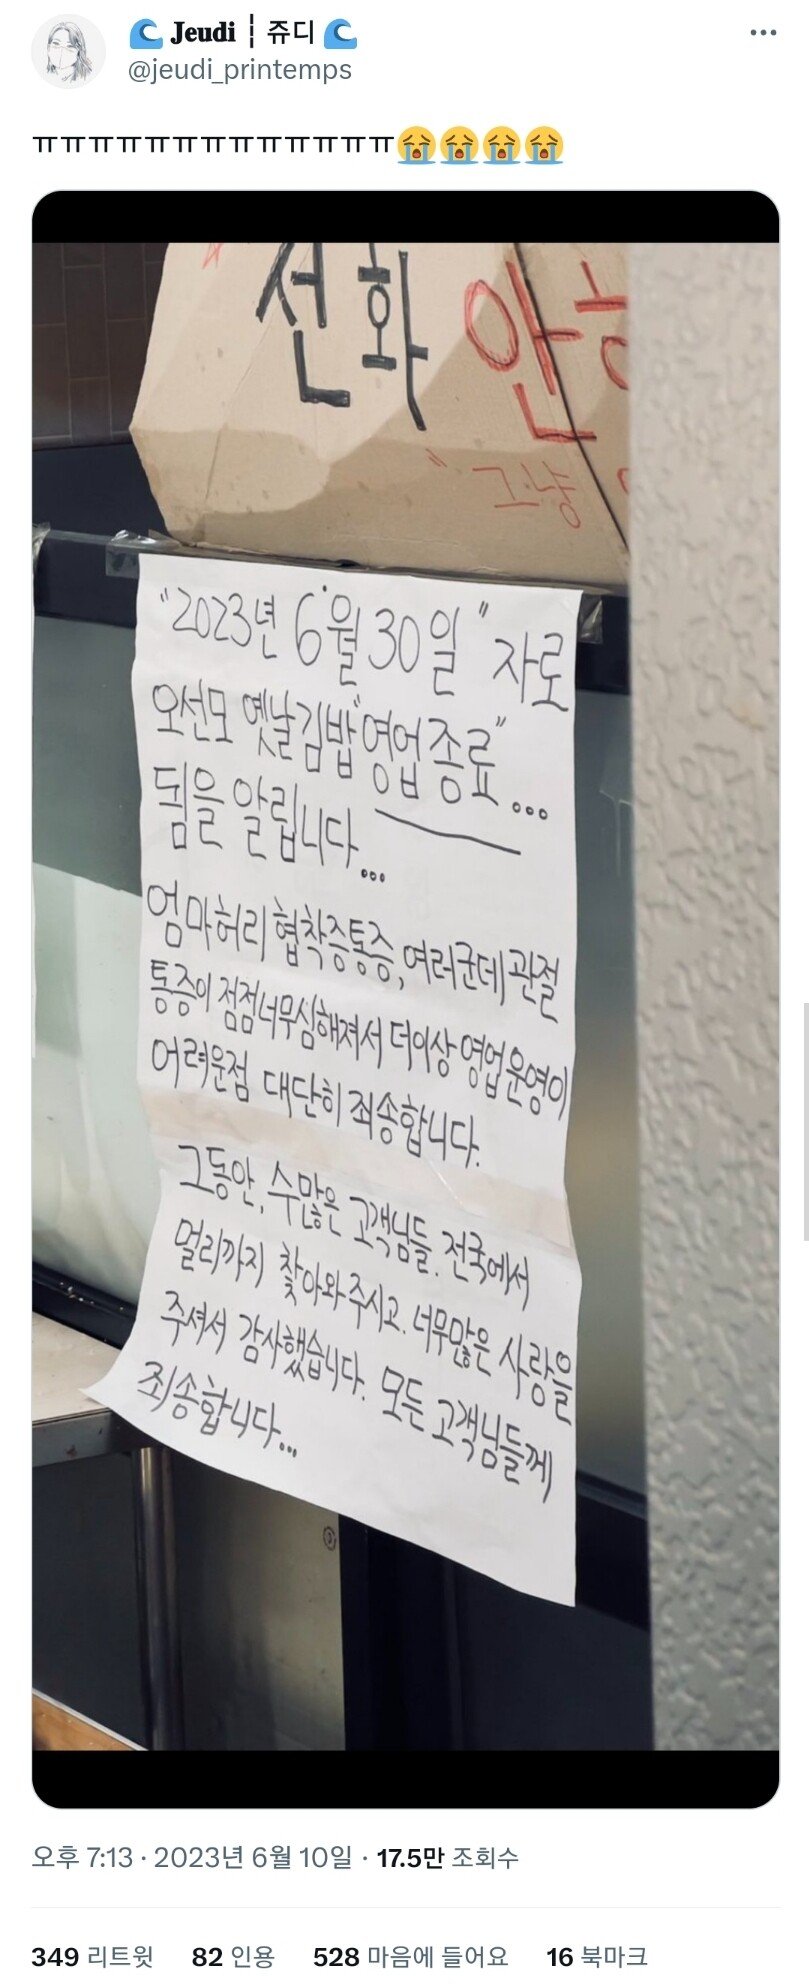 🌊 Jeudi ┆ 쥬디 🌊
@jeudi_printemps
ㅠㅠㅠㅠㅠㅠㅠㅠㅠㅠㅠㅠㅠ😭😭😭😭
전화 안
"그냥
"2023년 6월 30일" 자로
오선모 옛날김밥 "영업종료"...
됨을 알립니다...
엄마허리 협착증통증, 여러군데 관절
통증이 점점너무심해져서 더이상 영업운영이
어려운점 대단히 죄송합니다.
그동안, 수많은 고객님들. 전국에서
멀리까지 찾아와주시고. 너무많은 사랑을
주셔서 감사했습니다. 모든고객님들께
죄송합니다...
오후 7:13 · 2023년 6월 10일 · 17.5만 조회수
349 리트윗 82 인용 528 마음에 들어요 16 북마크